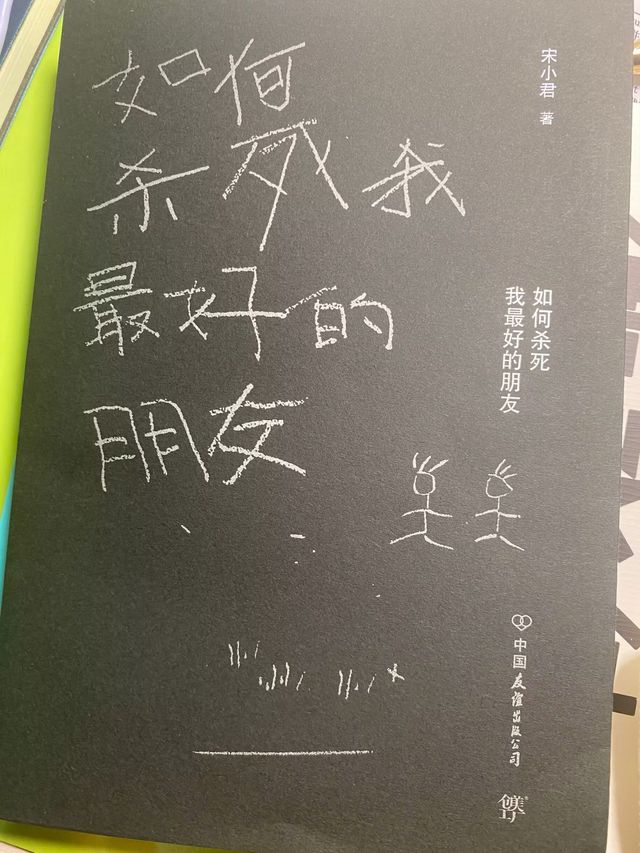 如何
杀死我
最好的
朋友
宋小君 著
如何杀死
我最好的朋友
中国友谊出版公司
创美工厂